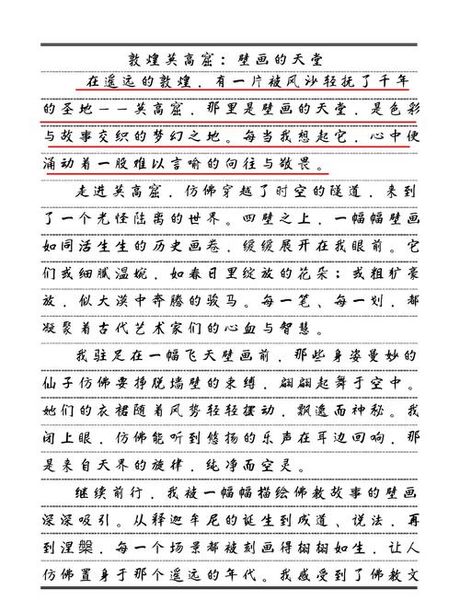 敦煌莫高窟：壁画的天堂
在遥远的敦煌，有一片被风沙轻抚了千年
的圣地——莫高窟，那里是壁画的天堂，是色彩
与故事交织的梦幻之地。每当我想起它，心中便
涌动着一股难以言喻的向往与敬畏。
走进莫高窟，仿佛穿越了时空的隧道，来到
了一个光怪陆离的世界。四壁之上，一幅幅壁画
如同活生生的历史画卷，缓缓展开在我眼前。它
们或细腻温婉，如春日里绽放的花朵；或粗犷豪
放，似大漠中奔腾的骏马。每一笔、每一划，都
凝聚着古代艺术家们的心血与智慧。
我驻足在一幅飞天壁画前，那些身姿曼妙的
仙子仿佛要挣脱墙壁的束缚，翩翩起舞于空中。
她们的衣裙随着风势轻轻摆动，飘逸而神秘。我
闭上眼，仿佛能听到悠扬的乐声在耳边回响，那
是来自天界的旋律，纯净而空灵。
继续前行，我被一幅幅描绘佛教故事的壁画
深深吸引。从释迦牟尼的诞生到成道、说法，再
到涅槃，每一个场景都被刻画得栩栩如生，让人
仿佛置身于那个遥远的年代。我感受到了佛教文